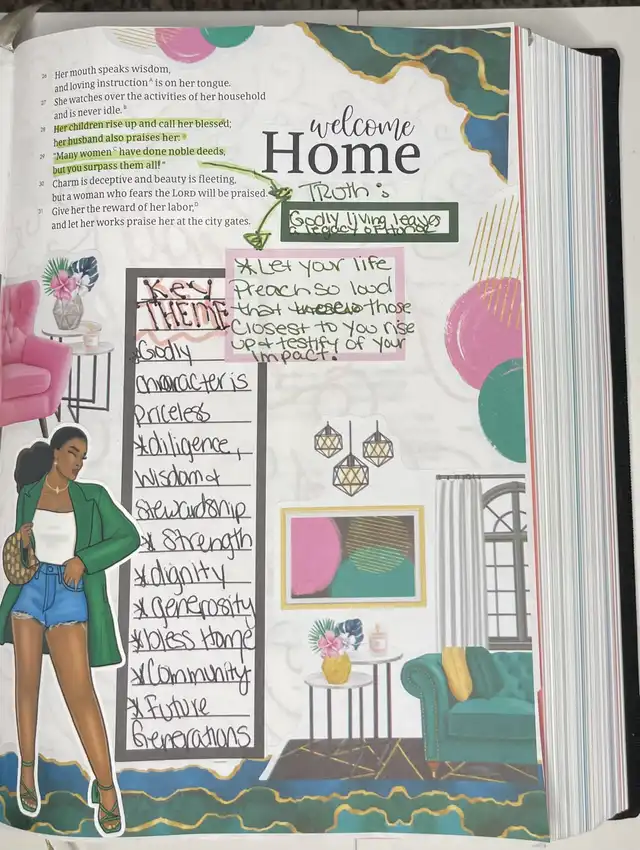 26 Her mouth speaks wisdom,
and loving instruction^A is on her tongue.
27 She watches over the activities of her household
and is never idle.^B
28 Her children rise up and call her blessed;
her husband also praises her:
29 "Many women^C have done noble deeds,
but you surpass them all!"
30 Charm is deceptive and beauty is fleeting,
but a woman who fears the LORD will be praised.
31 Give her the reward of her labor,^D
and let her works praise her at the city gates.
welcome
Home
Truth:
Godly living leaves
a legacy of honor
*Let your life
Preach so loud
that those
Closest to you rise
up & testify of your
impact.
Key
THEME
*Godly
character is
priceless
*diligence,
wisdom &
stewardship
* Strength
*dignity
*generosity
*bless Home
*Community
*Future
Generations